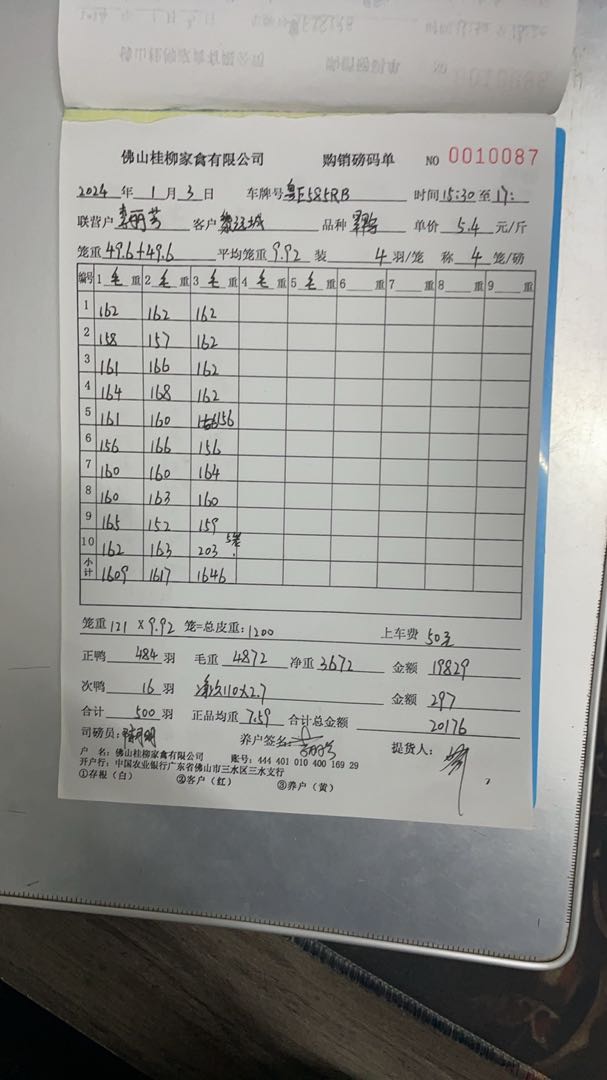 佛山桂柳家禽有限公司 购销磅码单 NO 0010087
2024 年 1 月 3 日 车牌号 粤E585RB 时间 15:30 至 17:
联营户 李丽芳 客户 品种 单价 5.4 元/斤
笼重 49.6+49.6 平均笼重 9.92 装 4 羽/笼 称 4 笼/磅
编号 1 毛 重 2 毛 重 3 毛 重 4 毛 重 5 毛 重 6 重 7 重 8 重 9 重
1 162 162 162
2 158 157 162
3 161 166 162
4 164 168 162
5 161 160 156
6 156 166 156
7 160 160 164
8 160 163 160
9 165 152 159
10 162 163 203 5笼
小计 1609 1617 1646
笼重 121 X 9.92 笼=总皮重: 1200 上车费 50元
正鸭 484 羽 毛重 4872 净重 3672 金额 19829
次鸭 16 羽 净次110x2.7 金额 297
合计 500 羽 正品均重 7.59 合计总金额 20176
司磅员: 养户签名: 提货人:
户 名: 佛山桂柳家禽有限公司 账号: 444 401 010 400 169 29
开户行: 中国农业银行广东省佛山市三水区三水支行
①存根（白） ②客户（红） ③养户（黄）